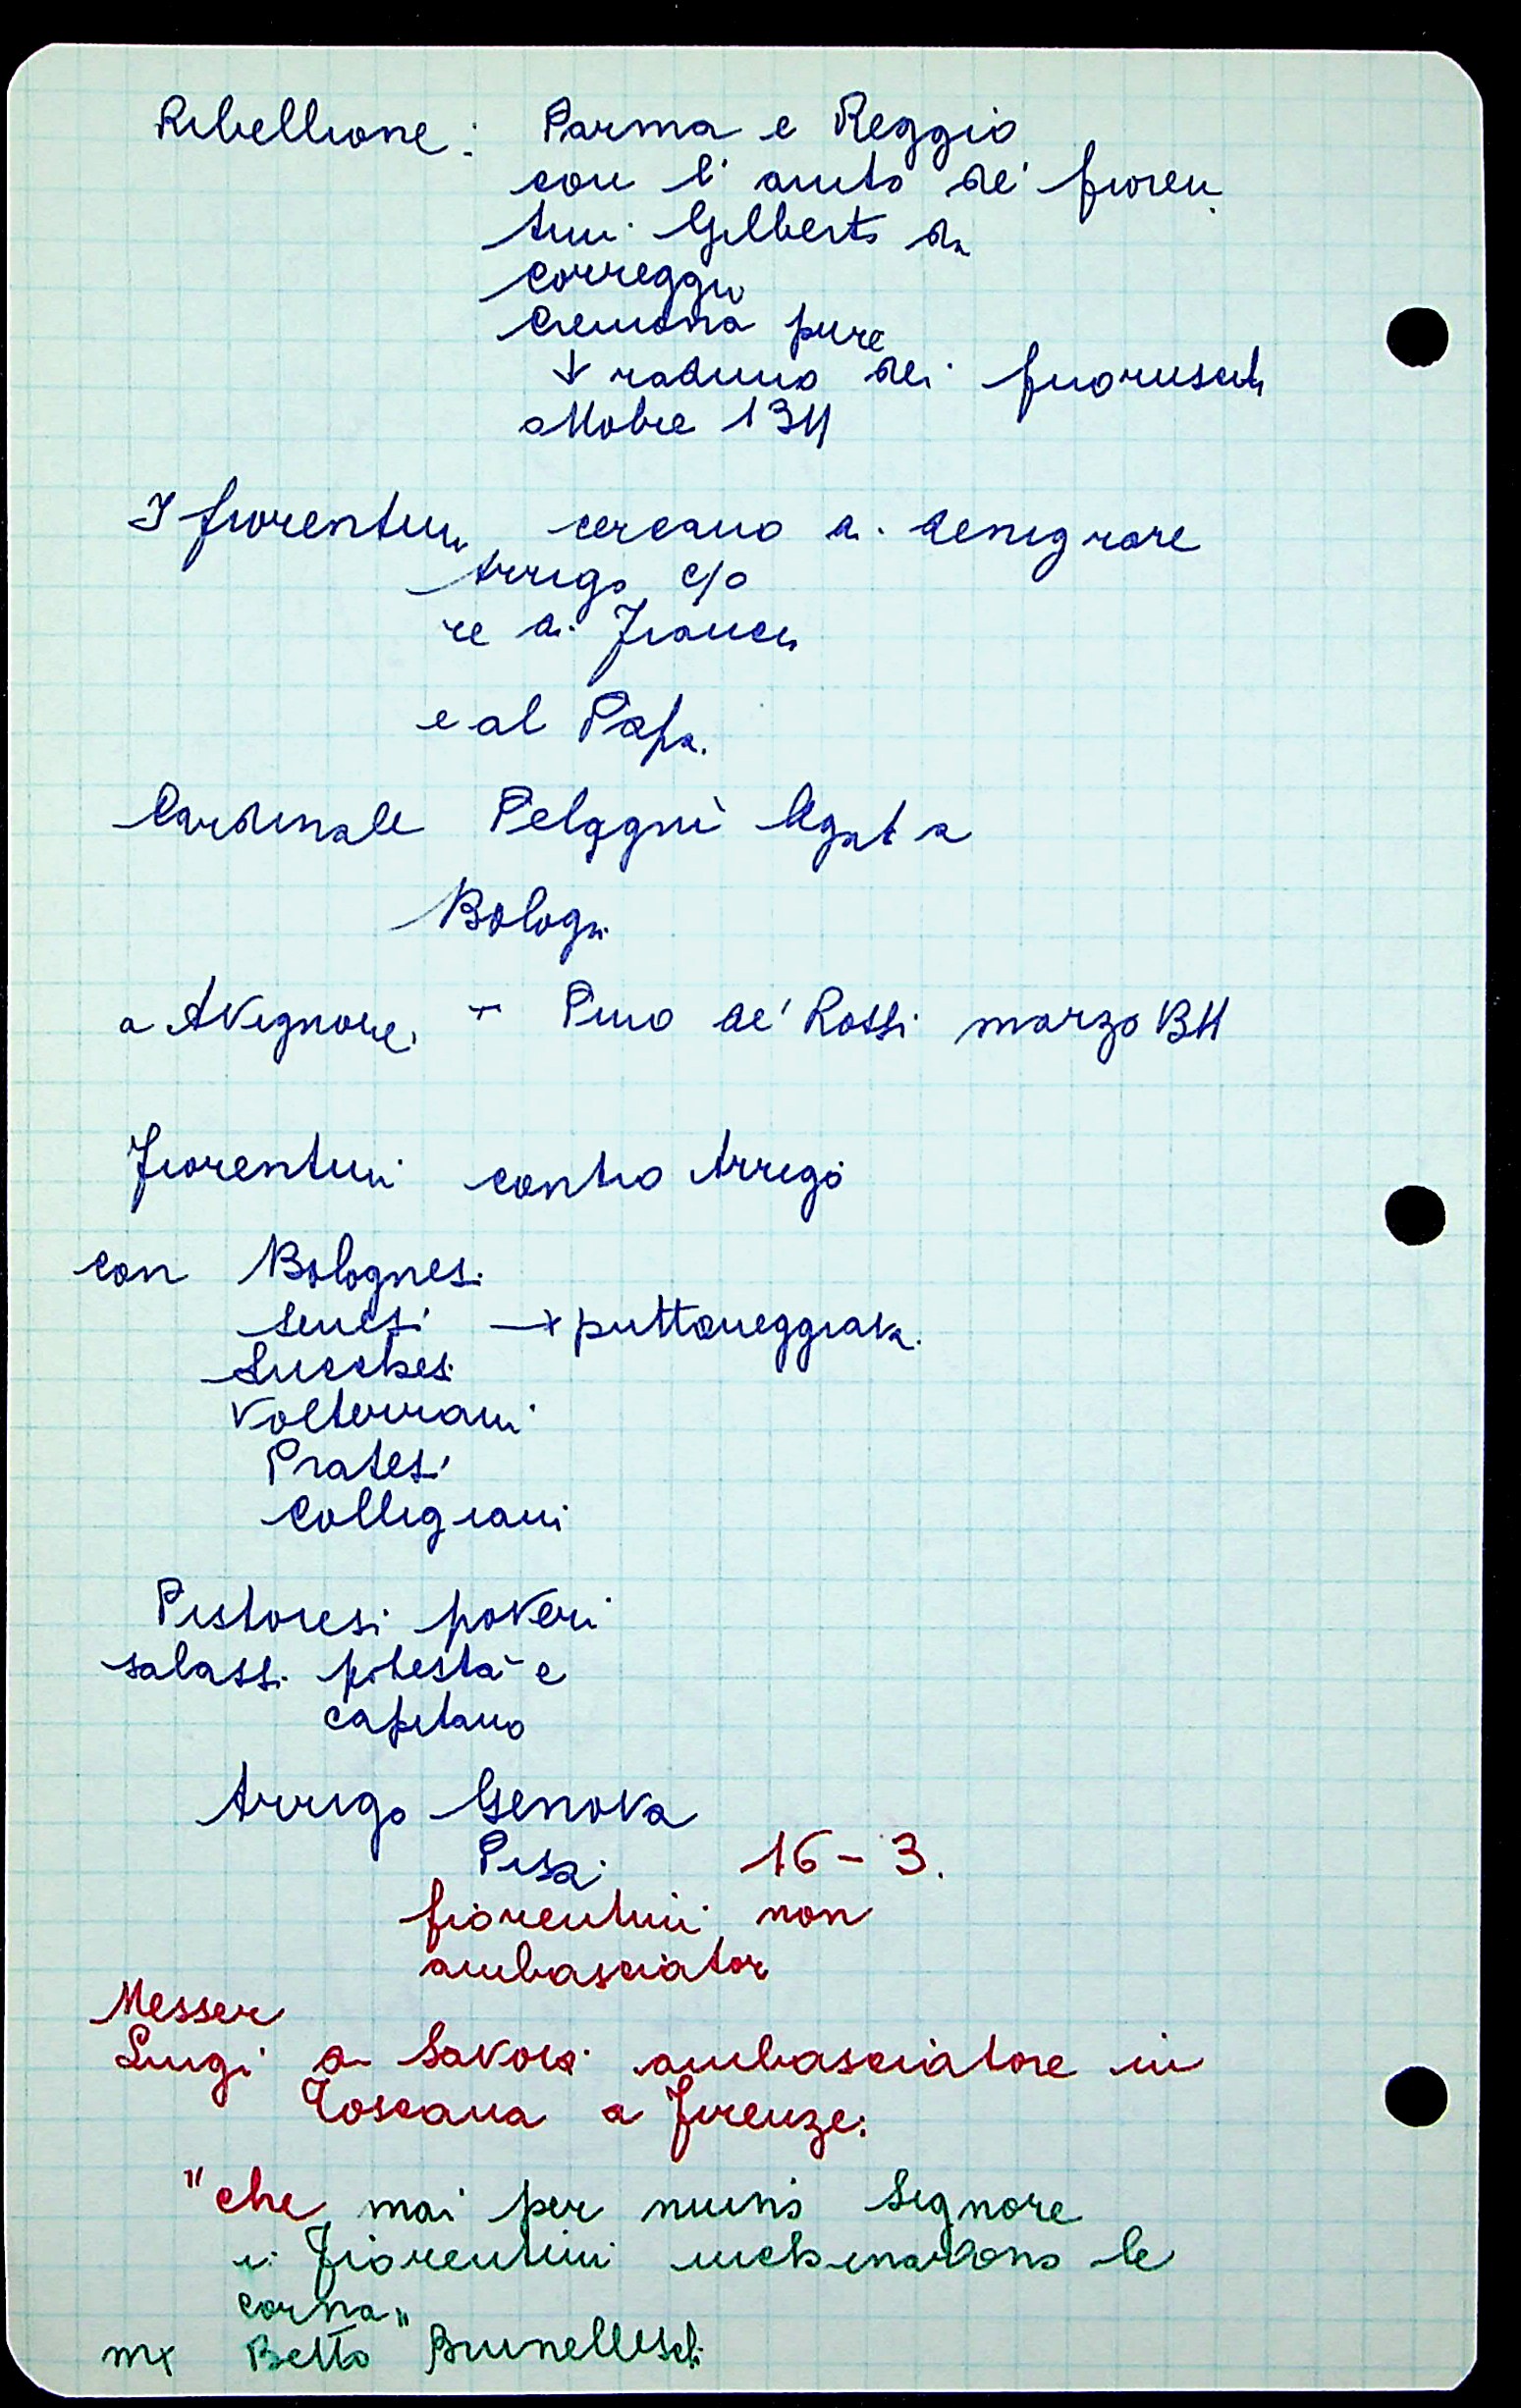 Ribellione: Parma e Reggio
con l'aiuto de' fioren
tini. Gilberto da
Correggio
Cremona pure
↓ raduno dei fuorusciti
ottobre 1311
I fiorentini cercano di denigrare
Arrigo c/o
re di Francia
e al Papa.
Cardinale Pelagrù legato a
Bologna
a Avignone. + Pino de' Rossi marzo 1311
Fiorentini contro Arrigo
con Bolognesi
Senesi → puttaneggiava.
Lucchesi
Volterrani
Pratesi
Colligiani
Pistoresi poveri
salassi potestà e
capitano
Arrigo Genova
Pisa. 16-3.
fiorentini non
ambasciator
Messer
Luigi di Savoia ambasciatore in
Toscana a Firenze:
"che mai per niuno Signore
i Fiorentini inchinarono le
corna"
mx Betto Brunelleschi